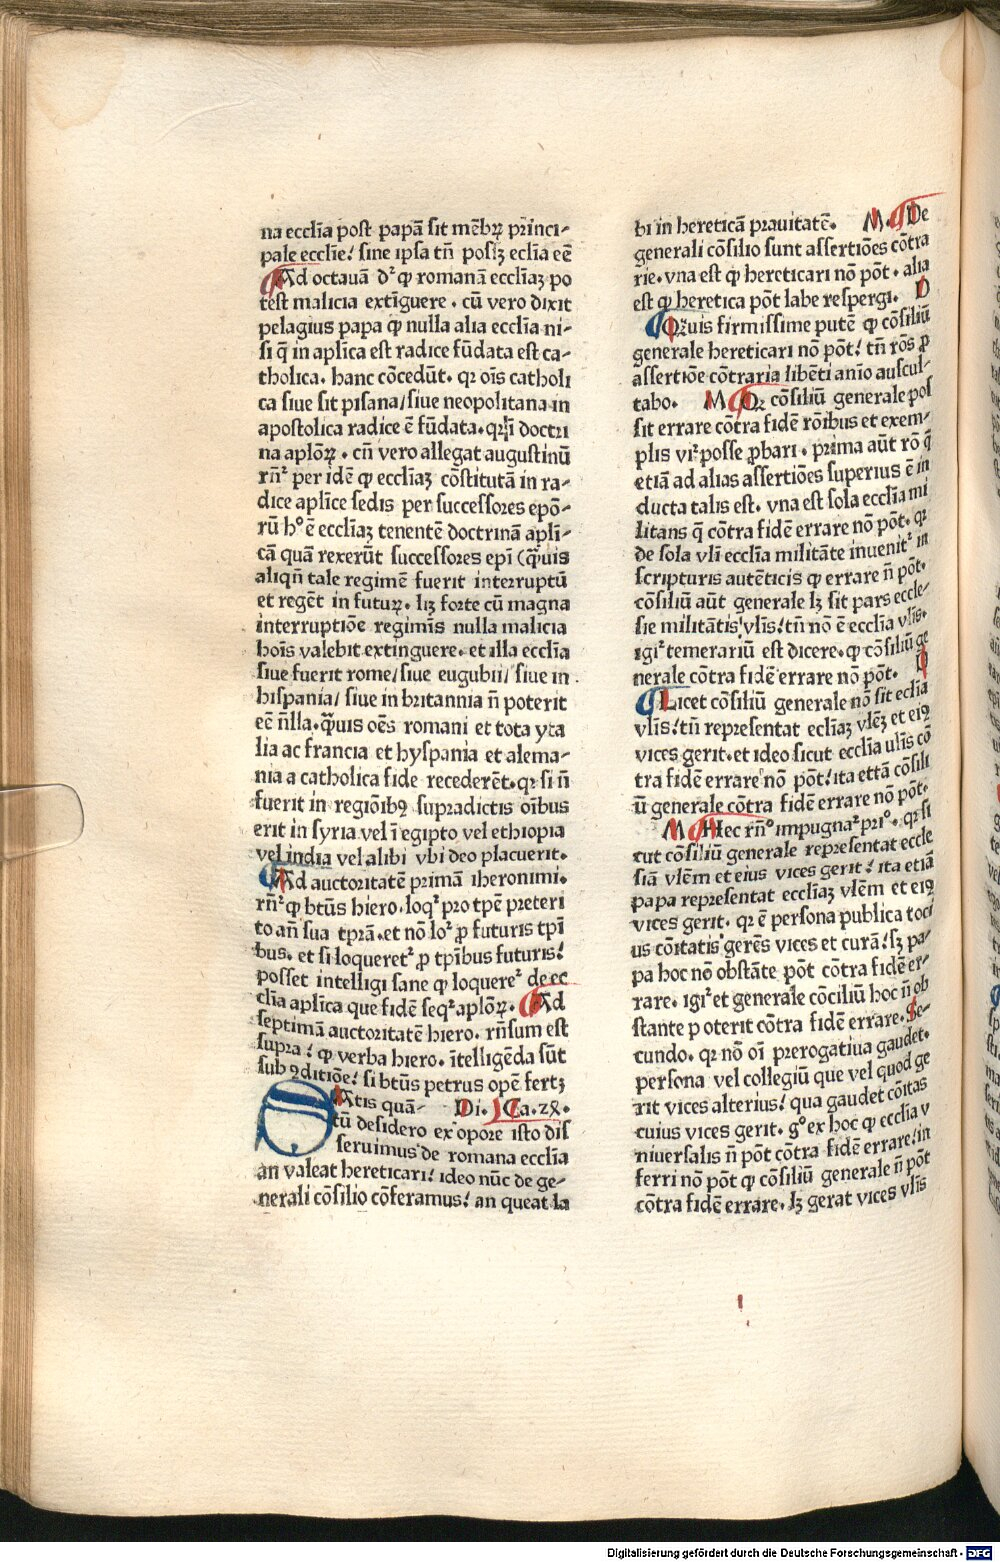 na ecclīa post papā sit mēbꝝ princi-
pale ecclīe! sine ipsa tn̄ possꝫ eclīa eē
Ad octauā dꝛ ꝙ romanā ecclīaꝫ po
test malicia extīguere . cū vero dixit
pelagius papa ꝙ nulla alia ecclīa ni-
si q̄ in aplīca est radice fūdata est ca-
tholica. hanc cōcedūt. qꝛ oīs catholi
ca siue sit pisana/siue neopolitana in
apostolica radice ē fūdata.qꝛ ī doctri
na aplōꝝ . cn̄ vero allegat augustinū
rn̄ꝛ per idē ꝙ ecclīaꝫ cōstitutā in ra-
dice aplīce sedis per successores epō-
rū hᵒ ē ecclīaꝫ tenentē doctrinā apli-
cā quā rexerūt successores epī (ꝙ̄uis
aliqn̄ tale regimē fuerit interruptū
et regēt in futurꝝ. lꝫ forte cū magna
interruptiōe regimīs nulla malicia
hoīs valebit extinguere. et illa ecclīa
siue fuerit rome/siue eugubii/siue in
hispania/siue in britannia n̄ poterit
eē n̄lla.ꝙ̄uis oēs romani et tota yta
lia ac francia et hyspania et alema-
nia a catholica fide recederēt.qꝛ si n̄
fuerit in regiōībꝰ supradictis oībus
erit in syria vel ī egipto vel ethiopia
vel india vel alibi vbi deo placuerit.
Ad auctoritatē primā iheronimi.
rn̄ꝛ ꝙ btūs hiero.loqꝛ pro tpē preteri
to an̄ sua tprā.et nō loꝛ ꝓ futuris tpī
bus. et si loqueretꝛ ꝓ tpībus futuris!
posset intelligi sane ꝙ loquereꝛ de ec
clīa aplīca que fidē seqꝛ aplōꝝ. Ad
septimā auctoritatē hiero. rn̄sum est
supra! ꝙ verba hiero. ītelligēda sūt
sub ꝯditiōe! si btūs petrus opē fertꝫ
Di. J Ca.zꝝ.
SAtis quā-
tū desidero ex opore isto dis
seruimus de romana ecclīa
an valeat hereticari! ideo nūc de ge-
nerali cōsilio cōferamus! an queat la
bi in hereticā prauitatē. M. De
generali cōsilio sunt assertiōes cōtra
rie. vna est ꝙ hereticari nō pōt . alia
est ꝙ heretica pōt labe respergi. D
Qꝛuis firmissime putē ꝙ cōsiliū
generale hereticari nō pōt! tn̄ rōs ꝓ
assertiōe cōtraria libēti anīo auscul-
tabo. M Qꝛ cōsiliū generale pos
sit errare cōtra fidē rōibus et exem-
plis viꝛ posse ꝓbari . prima aūt rō q̄
etiā ad alias assertiōes superius ē in
ducta talis est. vna est sola ecclīa mi
litans q̄ cōtra fidē errare nō pōt. qꝛ
de sola vlī ecclīa militāte inuenitꝛ in
scripturis autēticis ꝙ errare n̄ pōt.
cōsiliū aūt generale lꝫ sit pars eccle-
sie militātis vlīs!tn̄ nō ē ecclīa vlīs.
igiꝛ temerariū est dicere. ꝙ cōsiliū ge
nerale cōtra fidē errare nō pōt. D
Licet cōsiliū generale nō sit eclīa
vlīs!tn̄ representat eclīaꝫ vlēꝫ et eiꝰ
vices gerit.et ideo sicut ecclīa ulīs cō
tra fidē errare nō pōt!ita ettā cōsili
ū generale cōtra fidē errare nō pōt.
M Hec rn̄ᵒ impugnaꝛ priᵒ. qꝛ si
cut cōsiliū generale representat eccle
siā vlēm et eius vices gerit! ita etiā
papa representat ecclīaꝫ vlēm et eiꝰ
vices gerit. qꝛ ē persona publica toci
us cōitatis gerēs vices et curā!sꝫ pa-
pa hoc nō obstāte pōt cōtra fidē er-
rare. igiꝛ et generale cōciliū hoc n̄ ob
stante p oterit cōtra fidē errare. Se-
cundo. qꝛ nō oī prerogatiua gaudet.
persona vel collegiū que vel quod ge
rit vices alterius! qua gaudet cōitas
cuius vices gerit. gᵒ ex hoc ꝙ ecclīa v
niuersalis n̄ pōt cōtra fidē errare!in
ferri nō pōt ꝙ cōsiliū generale n̄ pōt
cōtra fidē errare. lꝫ gerat vices vlīs
Digitalisierung gefördert durch die Deutsche Forschungsgemeinschaft - DFG